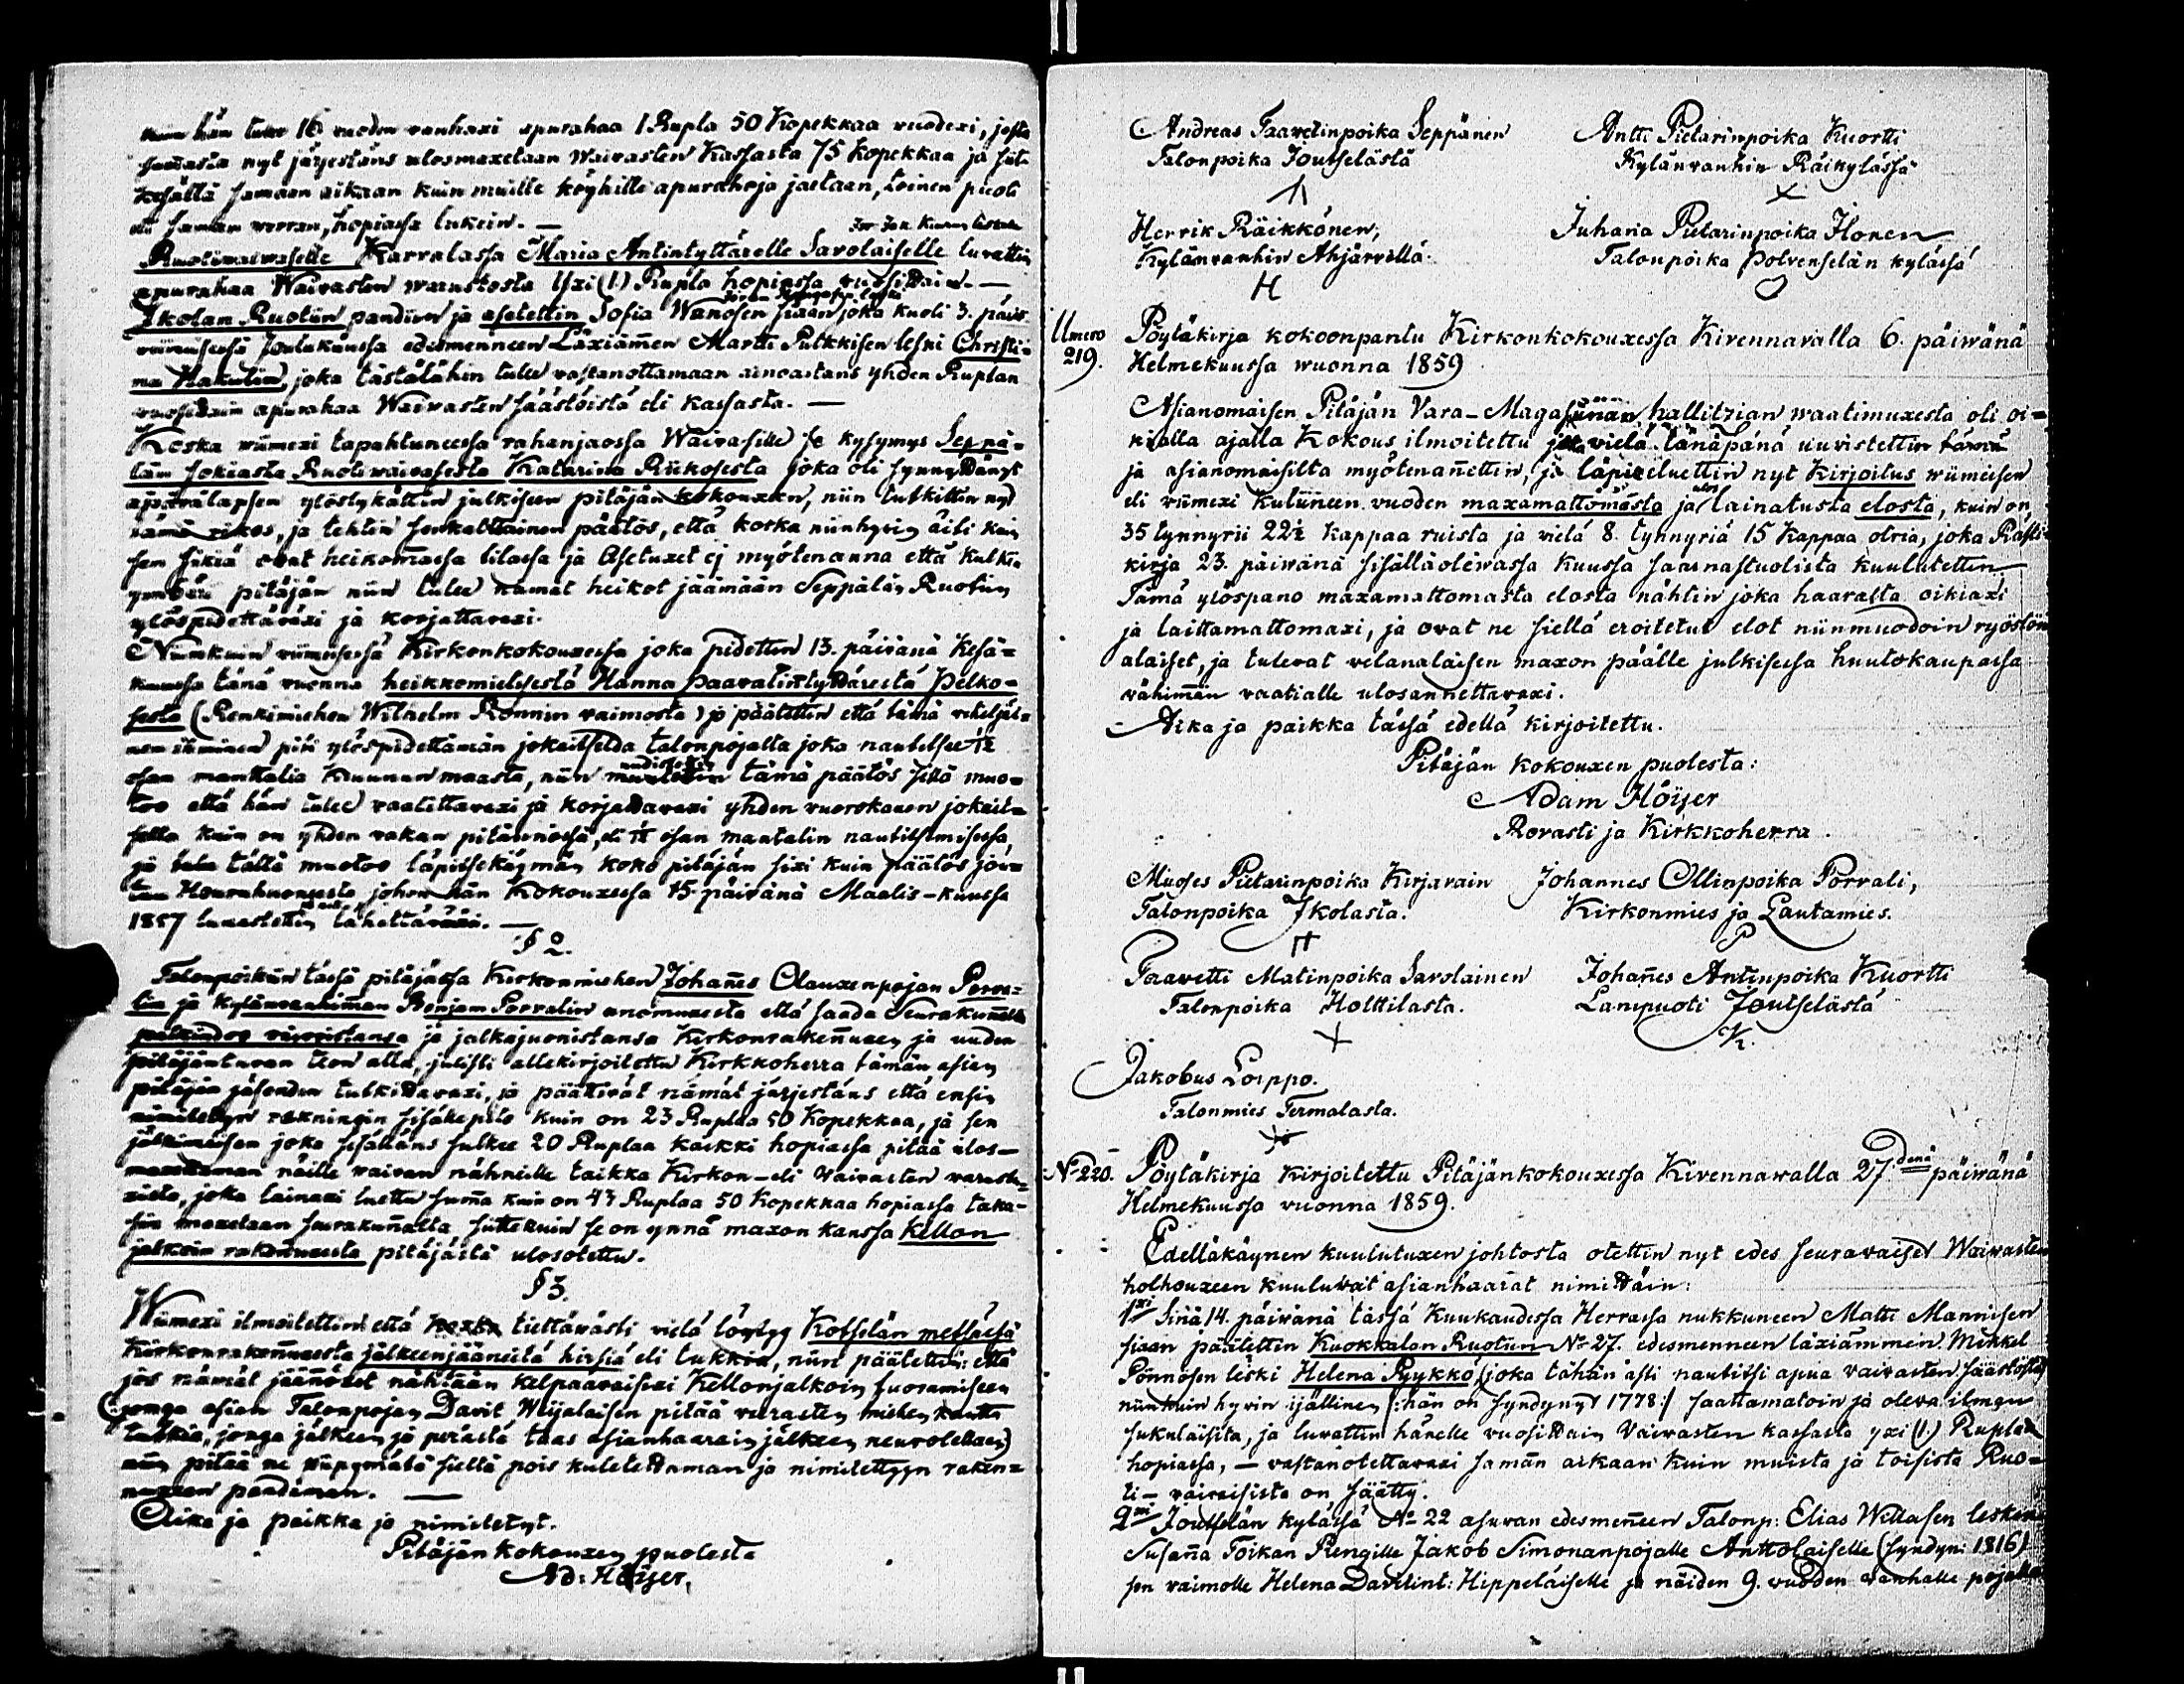 kuin hän tulee 16 vuoden vanhaxi apurahaa 1 Rupla 50 Kopekkaa vuodexi, josta
summasta nyt järjestäns ulosmaxetaan Waivasten Kassasta 75 Kopekkaa ja
kesällä samaan aikaan kuin muille köyhille apurahoja jaetaan, toinen puoli
eli saman verran, hopiassa lukein. —
Ruotiwaiwaselle Karvalassa Maria Antintyttärelle Savolaiselle luvattin
apurahaa Waivasten varastosta Yxi (1.) Rupla hopiassa vuosittain. —
Ikolan Ruotiin pandiin ja asetettin Sofia Wanosen siaan joka kuoli 3. päiv.
viimeisessä Joulukuussa edesmenneen Läxiämen Martti Pulkkisen leski Christi=
na Hakulin, joka tästälähin tulee vastanottamaan ainoastans yhden Ruplan
vuosittain apurahaa Waivasten säästöistä eli kassasta. —
Koska viimexi tapahtuneessa rahanjaossa Waivasille se kysymys Seppä=
län Jokiasta Ruotiwaivasesta Katarina Riikosesta joka oli synnyttänyt
äpärälapsen ylöslykättin julkiseen pitäjän kokouxeen, niin tutkittin nyt
tämä rikos, ja tehtin senkaltainen päätös, että koska niinhyvin äiti kuin
sen sikiä ovat heikommassa tilassa ja Asetuxet ej myötenanna että kulkea
ympäri pitäjän niin tulee namat heikot jäämään Seppälän Ruotiin
ylöspidettäväxi ja korjattavaxi.
Niinkuin viimeisessä Kirkonkokouxessa joka pidettin 13. päivänä Kesä=
kuussa tänä vuonna heikkomielisestä Hanna Paavalintyttärestä Pelko=
sesta (Renkimiehen Wilhelm Ronnin vaimosta) jo päätettin että tämä
nen ihminen piti ylöspidettämän jokaitselda talonpojalta joka nautitsee 1/12
osan manttalia Kruunun maasta, niin uudistettin tämä päätös sillä muo=
too että hän tulee vaatettavaxi ja korjattavaxi yhden vuorokauen jokait=
sella kuin on yhden vakan pitännössä, eli osan mantalin nautitsemisessa,
ja tulee tällä muotoo läpitsekäymän koko pitäjän sixi kuin päätös
Hourahuoneesta johon hän Kokouxessa 15. päivänä Maalis-kuussa
1857 luvastettin lähettäväxi. —
§ 2.
Talonpoikiin tässä pitäjässä Kirkonmiehen Johannes Olauxenpojan Porva=
lin ja kylänvanhimman Benjam Porvalin anomuxesta että saada Seurakunnalta
palkindoo vaivoistansa ja jalkajuonistansa Kirkonrakennuxen ja uuden
pitäjäntuvan teon alla, julisti allekirjoitettu Kirkkoherra tämän asian
pitäjän jäsenden tutkittavaxi, ja päätivät nämät järjestäns että ensin
nimitetyn rakningin sisäkepito kuin on 23 Ruplaa 50 Kopekkaa, ja sen
jälkimäisen joka sisälläns sulkee 20 Ruplaa kaikki hopiassa pitää ulos=
maxettaman näille vaivan nähneille taikka Kirkon- eli Waivasten varastu=
xista, joka lainaxi luettu summa kuin on 43 Ruplaa 50 Kopekkaa hopiassa taka=
sin maxetaan seurakunnalta sittekuin se on ynnä maxon kanssa Kellon
jalkoin rakennuxesta pitäjästä ulosotettu.
§ 3.
Wiimexi ilmoitettin että tiettävästi vielä löytyy Kotselän metsässä
Kirkonrakennuxesta jälkeenjääneitä hirsiä eli tukkia, niin päätettin: että
jos nämät jäännöxet nähtään kelpaavaisixi Kellonjalkoin suoramiseen
jonga asian Talonpojan Davit Weijalaisen pitää varasten miehen kautta
tutkia, jonga jälkeen ja perästä taas asianhaarain jälkeen neuvotellaan
niin pitää ne viipymätä sieltä pois kuletettaman ja nimitettyyn raken=
nuxeen pandaman. —
Aika ja paikka jo nimitetyt.
Pitäjän kokouxen puolesta
Ad: Höijer.
Andreas Taavetinpoika Seppänen Antti Pietarinpoika Kuortti
Talonpoika Joutselästä Kylänvanhin Räikylässä
Henrik Räikkönen, Juhana Pietarinpoika Ilonen
Kylänvanhin Ahjärvillä. Talonpoika Polvenselän kylässä
Umero 219. Pöytäkirja kokoonpantu Kirkonkokouxessa Kivennavalla 6. päiwänä
Helmekuussa wuonna 1859
Asianomaisen Pitäjän Vara-Magasiinan hallitzian waatimuxesta oli oi=
kialla ajalla Kokous ilmoitettu joka vielä tänäpänä uuvistettin
ja asianomaisilta myötenannettin, ja läpitseluettin nyt Kirjoitus wiimeisen
eli viimexi kuluneen vuoden maxamattomasta ja ulos lainatusta elosta, kuin on
35 tynnyrii 22½ kappaa ruista ja vielä 8. tynnyriä 15 Kappaa otria, joka Rästi-
kirja 23. päiwänä sisälläolewassa kuussa saarnastuolista kuulutettin
Tämä ylöspano maxamattomasta elosta nähtin joka haaralta oikiaxi
ja laittamattomaxi, ja ovat ne siellä eroitetut elot niinmuodoin ryöstön
alaiset, ja tulevat velanalaisen maxon päälle julkisessa huutokaupassa
vähimmän vaatialle ulosannettavaxi.
Aika ja paikka tässä edellä kirjoitettu.
Pitäjän kokouxen puolesta:
Adam Höijer
Rovasti ja Kirkkoherra.
Muoses Pietarinpoika Kirjavain Johannes Ollinpoika Porvali,
Talonpoika Ikolasta. Kirkonmies ja Lautamies.
Taavetti Matinpoika Savolainen Johannes Antinpoika Kuortti
Talonpoika Holttilasta. Lampuoti Joutselästä
Jakobus Loippo.
Talonmies Termolasta.
No 220. Pöytäkirja kirjoitettu Pitäjänkokouxessa Kivennawalla 27denä päiwänä
Helmekuussa vuonna 1859.
Edelläkäynen kuulutuxen johtosta otettin nyt edes seuravaiset Waivasten
holhouxeen kuuluwat asianhaarat nimittäin:
1xi Sinä 14. päivänä tässä Kuukaudessa Herrassa nukkuneen Matti Mannisen
siaan päätettin Kuokkalan Ruotiin No 27. edesmenneen läxiämmein Mikkel
Pönnösen leski Helena Pyykkö, joka tähän asti nautitsi apua vaivasten säästöistä
niinkuin hyvin ijällinen /: hän on syndynyt 1778:/ saattamatoin ja oleva ilman
sukulaisita, ja luvattin hänelle vuosittain Vaivasten kassasta yxi (1.) Ruplaa
hopiassa, — vastanotettavaxi saman aikaan kuin muista ja toisista Ruo=
ti- vaivaisista on säätty.
2xi Joutselän kylässä No 22 asuvan edesmeneen Talonp: Elias Willasen lesken
Susanna Toikan Rengille Jakob Simonanpojalle Anttolaiselle (syndyni 1816)
sen vaimolle Helena Davitint: Hippeläiselle ja näiden 9. vuoden vanhalle pojalle